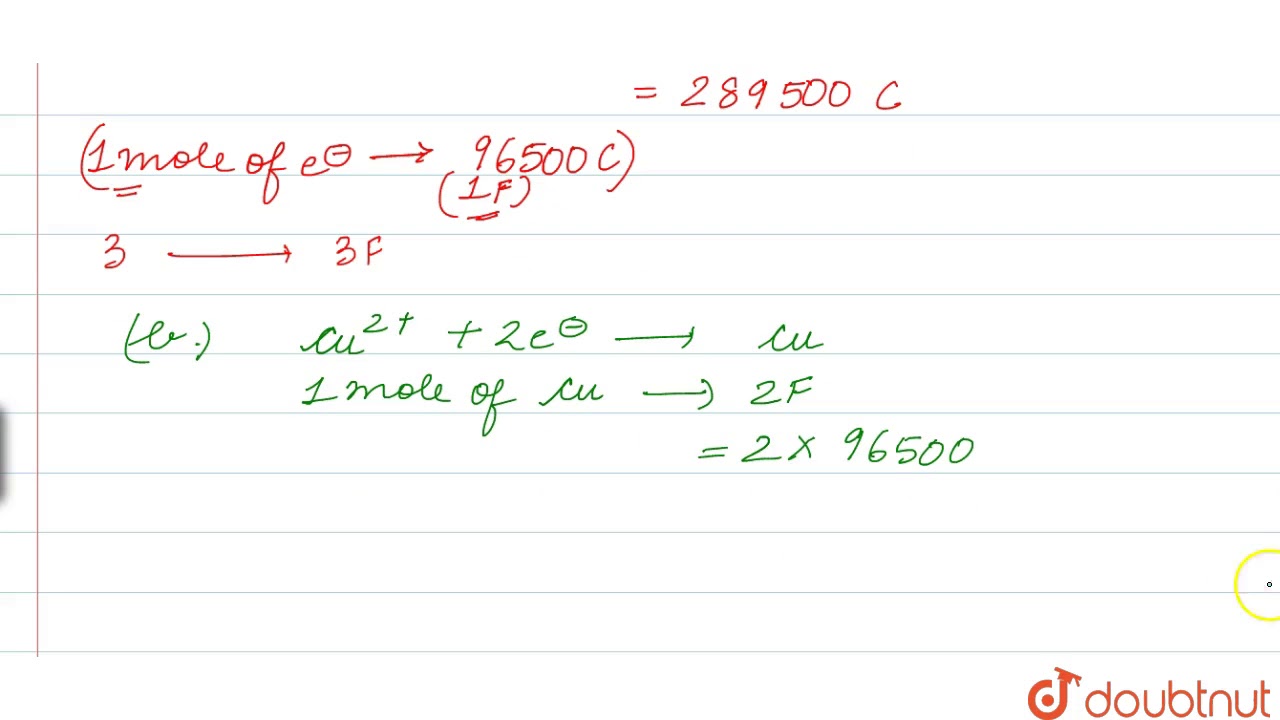 = 289500 C
(1 mole of e⊖ → 96500 C)
(1F)
3 → 3F
(b.) Cu²⁺ + 2e⊖ → Cu
1 mole of Cu → 2F
= 2 × 96500
doubtnut